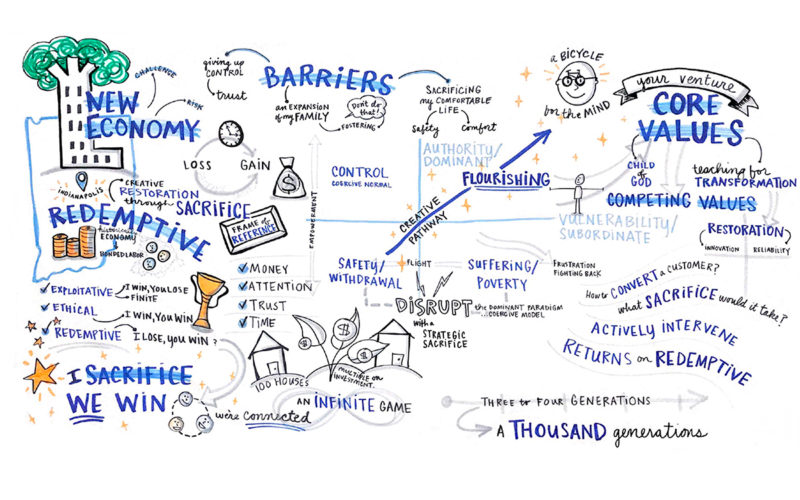 NEW
ECONOMY
CHALLENGE
RISK
giving up
CONTROL
trust
BARRIERS
an EXPANSION
of my FAMILY
Don't do
that!
FOSTERING
SACRIFICING
my COMFORTABLE
LIFE
Safety
Comfort
a BICYCLE
for the MIND
your venture
CORE
VALUES
CHILD
of
GOD
teaching for
TRANSFORMATION
COMPETING VALUES
RESTORATION
INNOVATION
RELIABILITY
INDIANAPOLIS
CREATIVE
RESTORATION
through SACRIFICE
REDEMPTIVE
historically
ECONOMY
BONDED LABOR
LOSS
GAIN
$
FRAME of
REFERENCE
EMPOWERMENT
CONTROL
COERCIVE NORMAL
AUTHORITY/
DOMINANT
FLOURISHING
CREATIVE
PATHWAY
VULNERABILITY/
SUBORDINATE
SAFETY/
WITHDRAWAL
FLIGHT
SUFFERING/
POVERTY
FRUSTRATION
FIGHTING BACK
DISRUPT
the DOMINANT PARADIGM
COERCIVE MODEL
with a
STRATEGIC
SACRIFICE
MONEY
ATTENTION
TRUST
TIME
EXPLOITATIVE
I WIN, YOU LOSE
FINITE
ETHICAL
I WIN, YOU WIN
REDEMPTIVE
I LOSE, YOU WIN?
I SACRIFICE
WE WIN
we're connected
100 HOUSES
$
$
$
MULTIPLE on
INVESTMENT.
AN INFINITE GAME
How to CONVERT a CUSTOMER?
what SACRIFICE would it take?
ACTIVELY INTERVENE
RETURNS on REDEMPTIVE
THREE to FOUR GENERATIONS
A THOUSAND generations